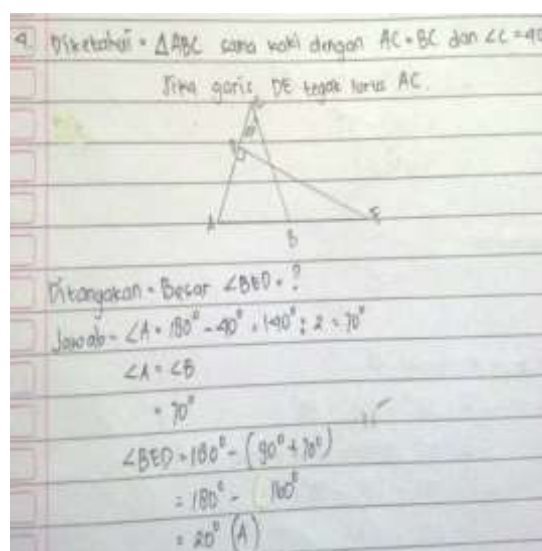 4. Diketahui = △ABC sama kaki dengan AC = BC dan ∠C = 40
Jika garis DE tegak lurus AC.
C
D
A
B
E
Ditanyakan = Besar ∠BED = ?
Jawab = ∠A = 180° - 40° = 140° : 2 = 70°
∠A = ∠B
= 70°
∠BED = 180° - (90° + 70°)
= 180° - 160°
= 20° (A)